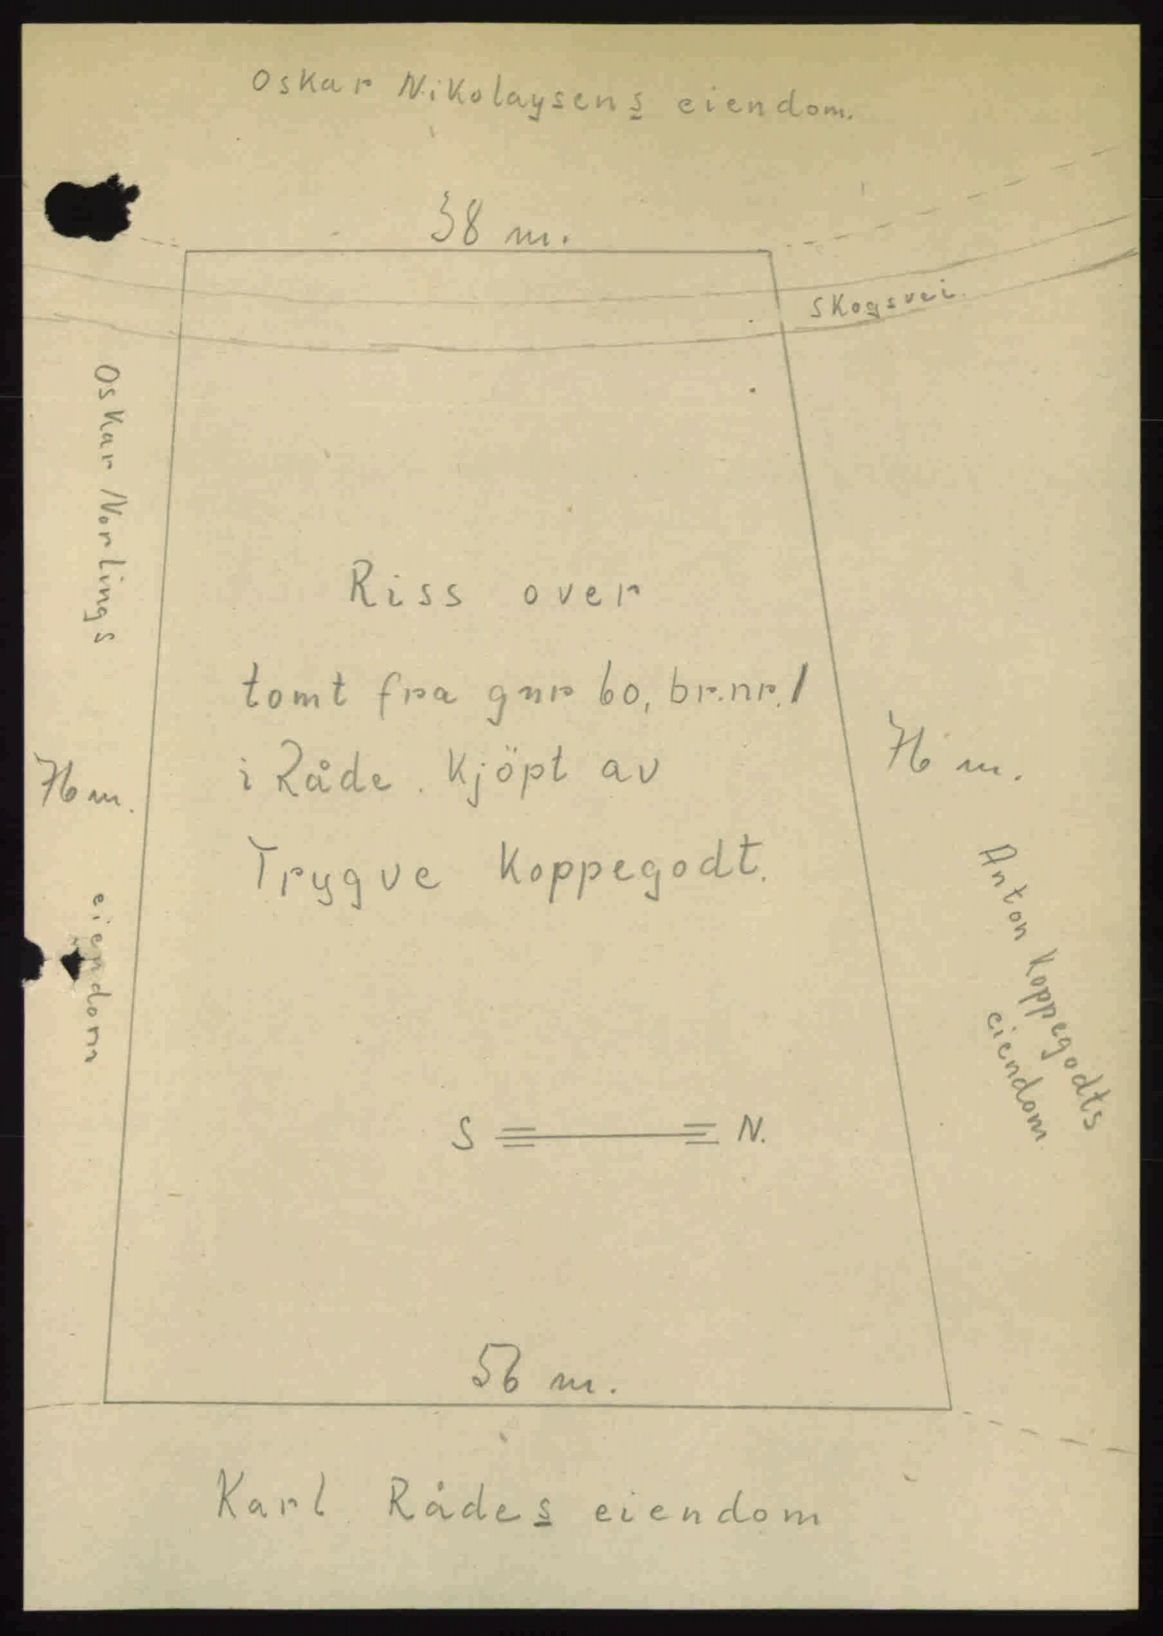 Oskar Nikolaysens eiendom.
38 m.
Skogsvei.
Oskar Norlings
eiendom
Riss over
tomt fra gnr 60, br.nr. 1
i Råde. Kjöpt av
Trygve Koppegodt.
76 m.
76 m.
Anton Koppegodts
eiendom
S N.
56 m.
Karl Rådes eiendom